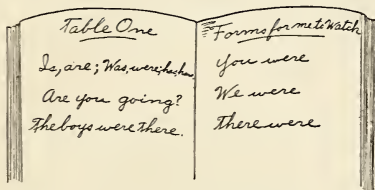 Table One
Is, are; Was, were; has, have
Are you going?
The boys were there.
Forms for me to Watch
You were
We were
There were